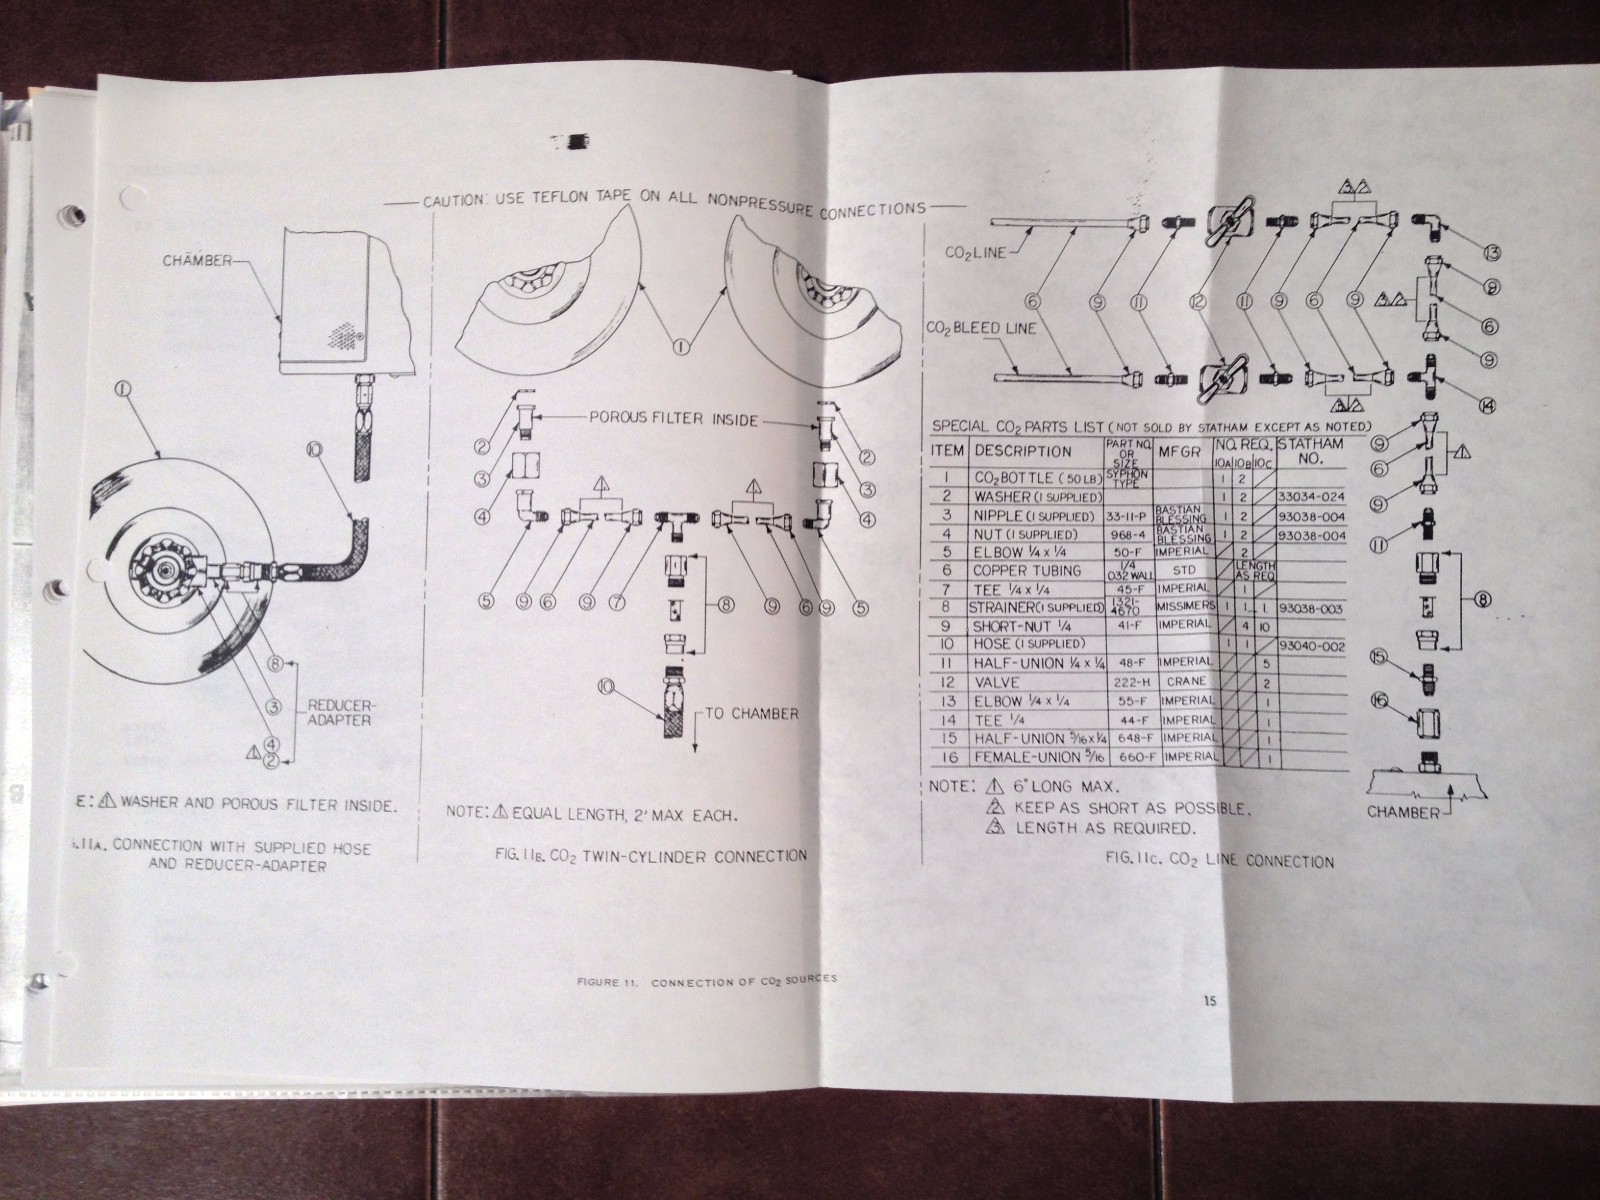 CAUTION: USE TEFLON TAPE ON ALL NONPRESSURE CONNECTIONS
CHAMBER
1
10
8
3
4
2
REDUCER-
ADAPTER
E: 1 WASHER AND POROUS FILTER INSIDE.
11A. CONNECTION WITH SUPPLIED HOSE
AND REDUCER-ADAPTER
1
POROUS FILTER INSIDE
2
3
4
1
1
2
3
4
5 9 6 9 7 8 9 6 9 5
10
TO CHAMBER
NOTE: 1 EQUAL LENGTH, 2' MAX EACH.
FIG. 11B. CO2 TWIN-CYLINDER CONNECTION
3 2
CO2 LINE
13
6 9 11 12 11 9 6 9
9
3 2
6
9
CO2 BLEED LINE
3 2
14
SPECIAL CO2 PARTS LIST (NOT SOLD BY STATHAM EXCEPT AS NOTED)
ITEM DESCRIPTION PART NO. OR SIZE MFGR NO. REQ. 10A 10B 10C STATHAM NO.
1 CO2 BOTTLE (50 LB) SYPHON TYPE 1 2
2 WASHER (1 SUPPLIED) 1 2 33034-024
3 NIPPLE (1 SUPPLIED) 33-11-P BASTIAN BLESSING 1 2 93038-004
4 NUT (1 SUPPLIED) 968-4 BASTIAN BLESSING 1 2 93038-004
5 ELBOW 1/4 x 1/4 50-F IMPERIAL 2
6 COPPER TUBING 1/4 .032 WALL STD LENGTH AS REQ
7 TEE 1/4 x 1/4 45-F IMPERIAL 1
8 STRAINER (1 SUPPLIED) 1321-4670 MISSIMERS 1 1 1 93038-003
9 SHORT-NUT 1/4 41-F IMPERIAL 4 10
10 HOSE (1 SUPPLIED) 1 1 93040-002
11 HALF-UNION 1/4 x 1/4 48-F IMPERIAL 5
12 VALVE 222-H CRANE 2
13 ELBOW 1/4 x 1/4 55-F IMPERIAL 1
14 TEE 1/4 44-F IMPERIAL 1
15 HALF-UNION 5/16 x 1/4 648-F IMPERIAL 1
16 FEMALE-UNION 5/16 660-F IMPERIAL 1
9
6
9
1
11
8
15
16
CHAMBER
NOTE: 1 6" LONG MAX.
2 KEEP AS SHORT AS POSSIBLE.
3 LENGTH AS REQUIRED.
FIG. 11C. CO2 LINE CONNECTION
FIGURE 11. CONNECTION OF CO2 SOURCES
15